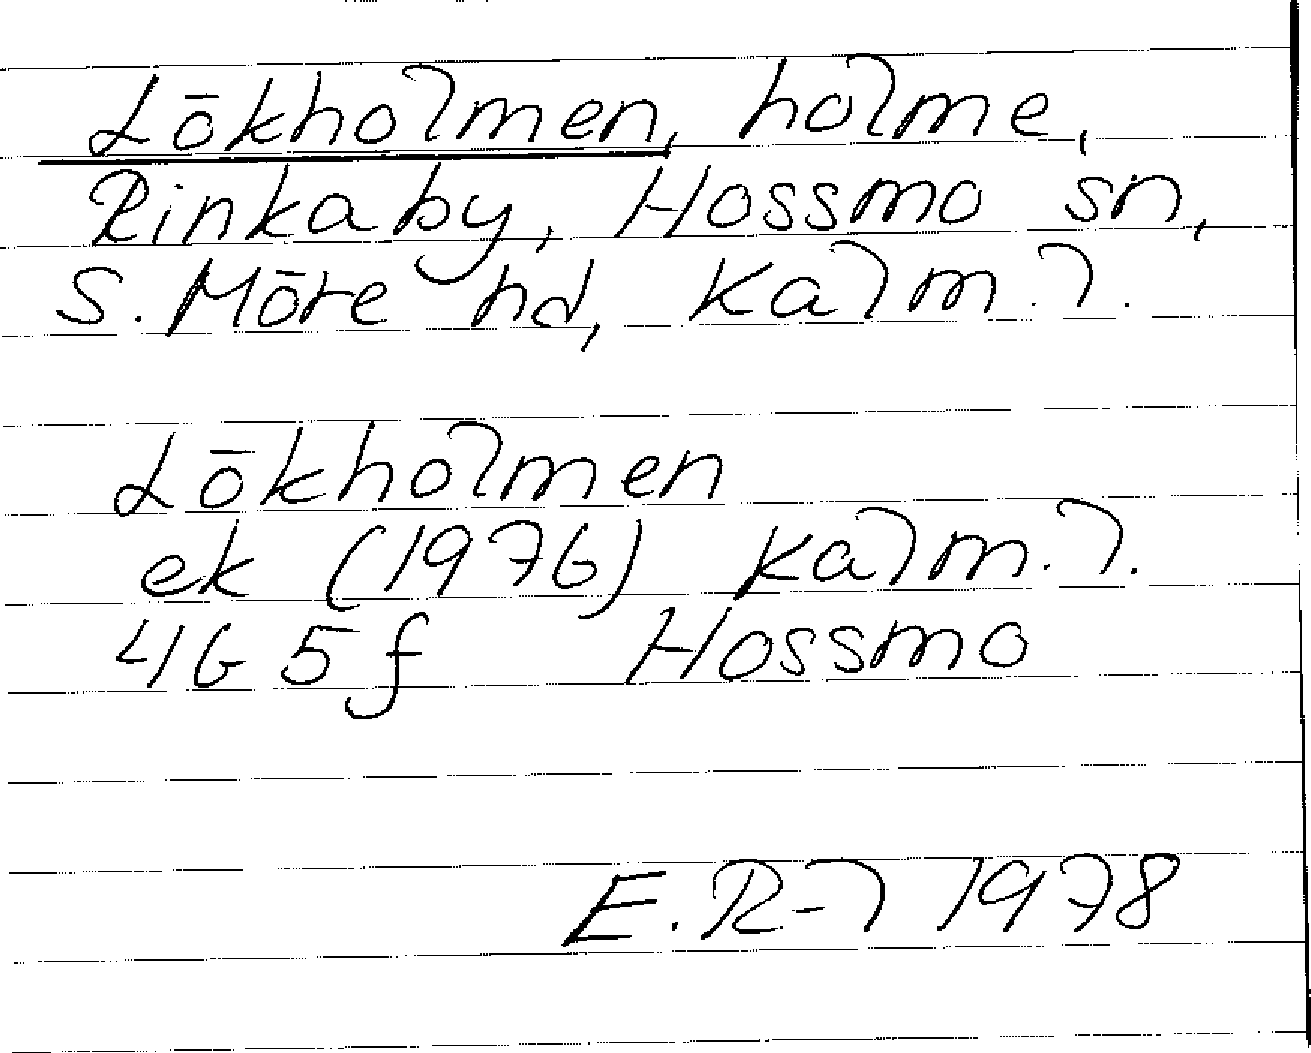 Lökholmen, holme,
Rinkaby, Hossmo sn,
S. Möre hd, Kalm. l.
Lökholmen
ek (1976) Kalm. l.
4G 5f Hossmo
E. R-l 1978